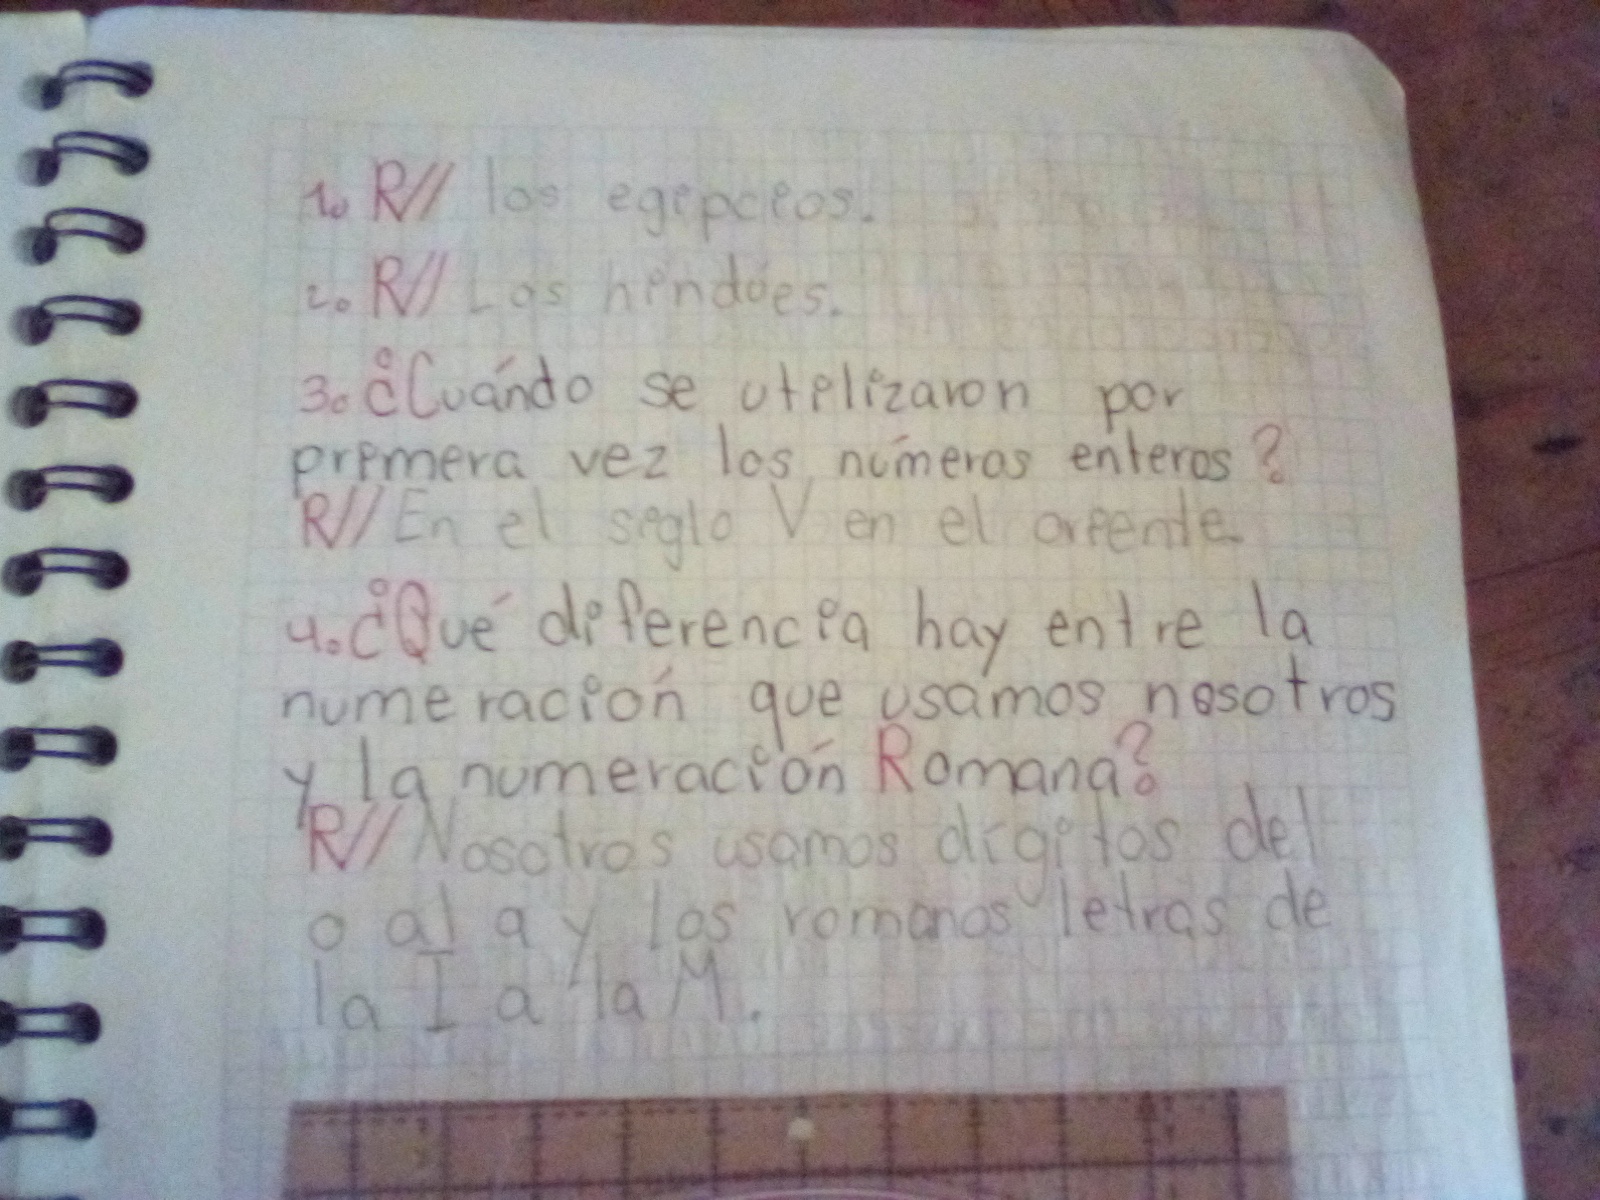 1. R// los egipcios.
2. R// Los hindúes.
3. ¿Cuándo se utilizaron por
primera vez los números enteros?
R// En el siglo V en el oriente
4. ¿Qué diferencia hay entre la
numeración que usamos nosotros
y la numeración Romana?
R// Nosotros usamos digitos del
0 al 9 y los romanos letras de
la I a la M.